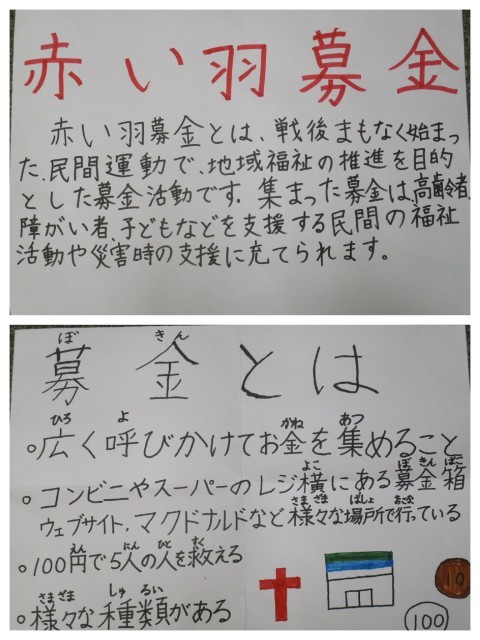 赤い羽募金
赤い羽募金とは、戦後まもなく始まっ
た、民間運動で、地域福祉の推進を目的
とした募金活動です。集まった募金は、高齢者、
障がい者、子どもなどを支援する民間の福祉
活動や災害時の支援に充てられます。
ぼ きん
募金とは
ひろ よ かね あつ
○広く呼びかけてお金を集めること
よこ ぼ きん ばこ
○コンビニやスーパーのレジ横にある募金箱
さまざま ばしょ おこな
ウェブサイト、マクドナルドなど様々な場所で行っている
えん にん ひと すく
○100円で5人の人を救える
さまざま しゅ るい
○様々な種類がある
10
100